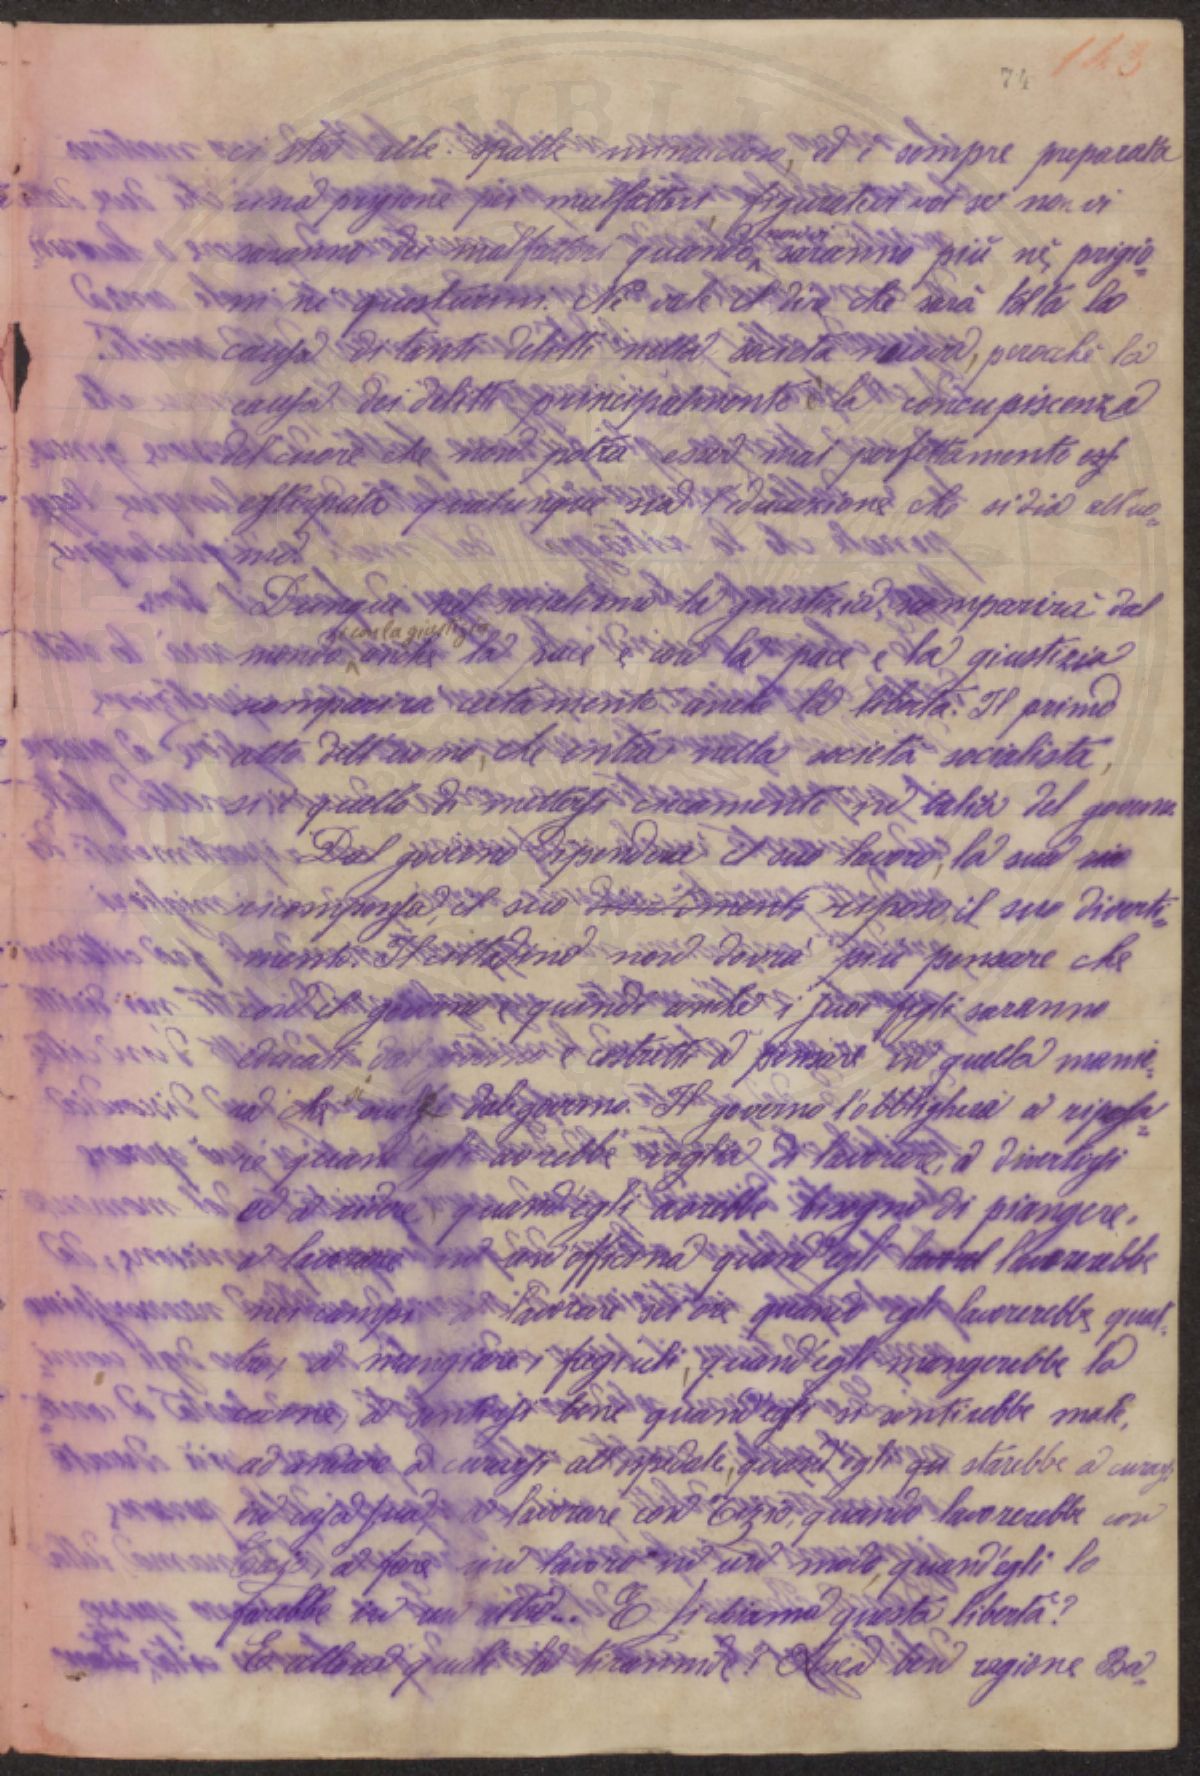 74 143
ci sta alle spalle minacciosa, ed è sempre preparata
una prigione pei malfattori, figuratevi voi se non vi
saranno dei malfattori quando non vi saranno più nè prigio-
ni nè questurini. Nè vale il dire che sarà tolta la
causa di tanti delitti nella società nuova, perocchè la
causa dei delitti principalmente è la concupiscenza
del cuore che non potrà esser mai perfettamente
estirpata qualunque sia l'educazione che si dia all'uo-
mo.
Dunque nel socialismo la giustizia scomparirà dal
mondo e con la giustizia anche la pace e con la pace e la giustizia
scomparirà certamente anche la libertà. Il primo
atto dell'uomo, che entra nella società socialista,
si è quello di mettersi ciecamente in balia del governo.
Dal governo dipenderà il suo lavoro, la sua
ricompensa, il suo riposo, il suo diverti-
mento. Il cittadino non dovrà più pensare che
con il governo e quindi anche i suoi figli saranno
educati e costretti a pensare in quella manie-
ra che si vuole dal governo. Il governo l'obbligherà a riposa-
re quand'egli avrebbe voglia di lavorare, a divertirsi
ed a ridere quand'egli avrebbe bisogno di piangere,
a lavorare in un'officina quand'egli lavorerebbe
nei campi a lavorare sei ore quando egli lavorerebbe quat-
tro, a mangiare i fagiuoli, quand'egli mangerebbe la
carne, a sentirsi bene quand'egli si sentirebbe male,
ad andare a curarsi all'ospedale, quand'egli starebbe a curarsi
in casa sua, a lavorare con Tizio, quando lavorerebbe con
Caio, a fare un lavoro in un modo, quand'egli lo
farebbe in un altro... E si chiama questa libertà?
E allora quale la tirannide? Avea ben ragione Ba-